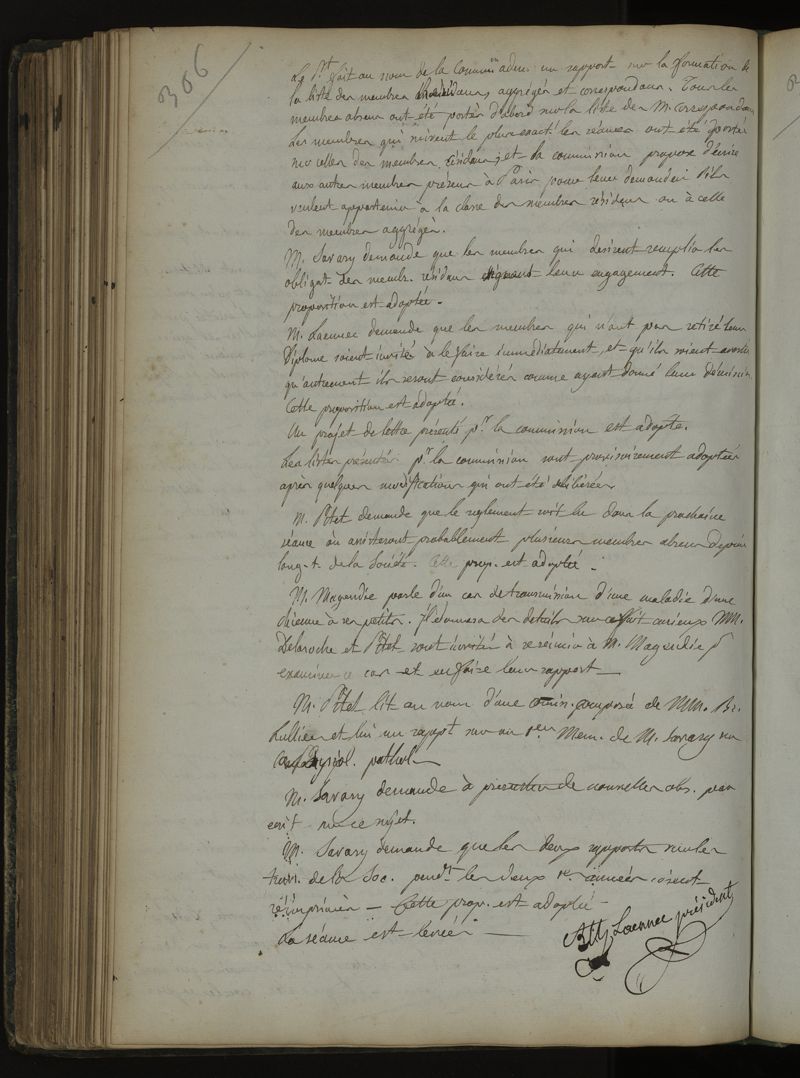 306
Le Pt fait au nom de la Commn adm. un rapport sur la formation de
la liste des membres résidans, aggrégés et correspondans. Tous les
membres absens ont été portés d'abord sur la liste des M. correspondans
Les membres qui suivent le plus exact. les séances ont été portés
sur celles des membres résidans, et la commission propose d'écrire
aux autres membres présens à Paris pour leur demander s'ils
veulent appartenir à la classe des membres résidans ou à celle
des membres aggrégés.
M. Savary demande que les membres qui desirent remplir les
obligat. des memb. résidans signent leur engagement. Cette
proposition est adoptée.
M. Laennec demande que les membres qui n'ont pas retiré leur
Diplome soient invités à le faire immédiatement, et qu'ils soient avertis
qu'autrement ils seront considérés comme ayant donné leur démission.
Cette proposition est adoptée.
Un projet de lettre présenté pr la commission est adopté.
Les listes présentées pr la commission sont provisoirement adoptées
après quelques modifications qui ont été délibérées.
M. Pétet demande que le reglement soit lu dans la prochaine
séance où assisteront probablement plusieurs membres absens depuis
long-t. de la Société. Cette prop. est adoptée.
M. Magendie parle d'un cas de transmission d'une maladie d'une
chienne à ses petits. Il donnera des details sur ce fait curieux MM.
Delaroche et Pétet sont invités à se réunir à M. Magendie pr
examiner ce cas et en faire leur rapport
M. Pétet lit au nom d'une comis. composée de MM.
et lui un rapport sur un Mem. de M. Savary sur
pathol.
M. Savary demande à présenter de nouvelles obs. par
écrit sur ce sujet.
M. Savary demande que les deux rapports sur les
trav. de la Soc. pendt les deux 1res années soient
réimprimés — Cette prop. est adoptée
La séance est levée —
Laennec président